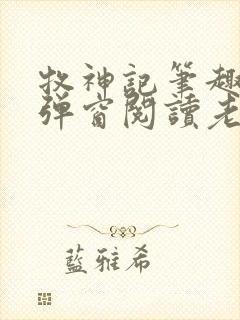 牧神記筆趣
彈窗閱讀老
藍雅希